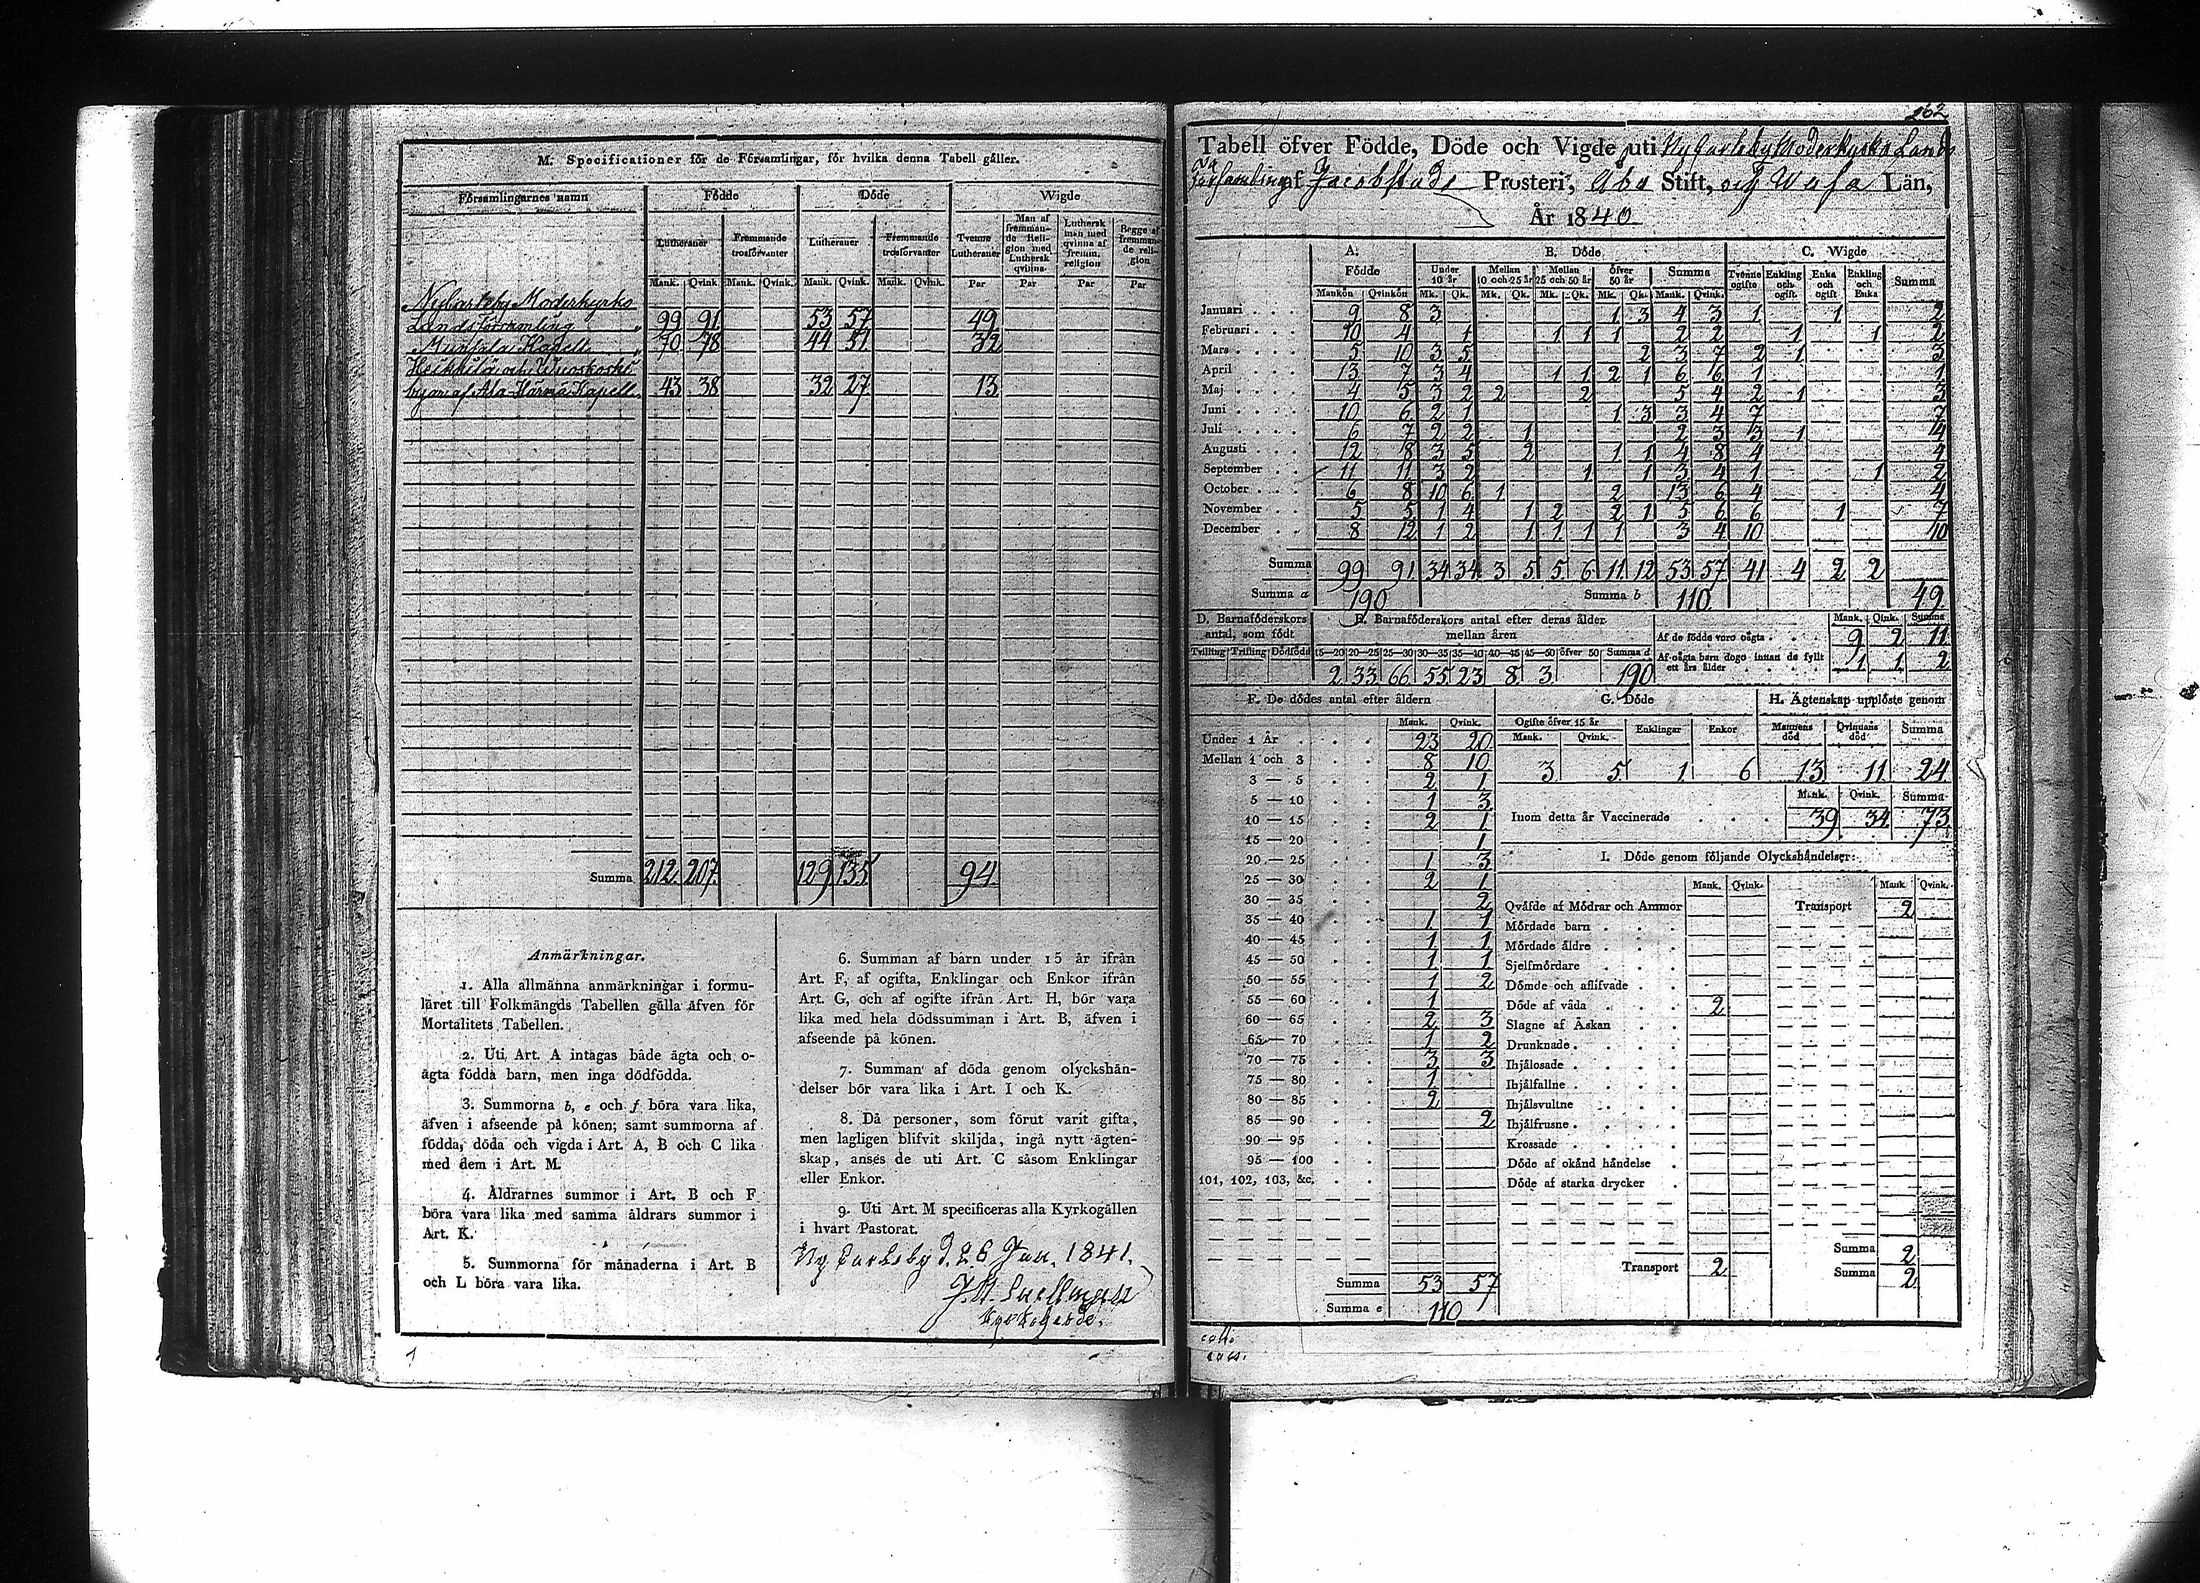 M. Specificationer för de Församlingar, för hvilka denna Tabell gäller.
Församlingarnes namn Födde Döde Wigde
Lutheraner Fremmande trosförvanter Lutheraner Fremmande trosförvanter Tvenne Lutheraner Man af fremmande Religion med Luthersk qvinna Luthersk man med qvinna af fremm. religion Begge af fremmande religion
Mank. Qvink. Mank. Qvink. Mank. Qvink. Mank. Qvink. Par Par Par Par
NyCarleby Moderkyrko
Lands Församling 99 91 53 57 49
Munsala Kapell 70 78 44 51 32
Heikkilä och Wuoskoski
byar af Ala-Härmä Kapell 43 38 32 27 13
Summa 212 207 129 135 94
Anmärkningar.
1. Alla allmänna anmärkningar i formu-
läret till Folkmängds Tabellen gälla äfven för
Mortalitets Tabellen.
2. Uti Art. A intagas både ägta och o-
ägta födda barn, men inga dödfödda.
3. Summorna b, e och f böra vara lika,
äfven i afseende på könen; samt summorna af
födda, döda och vigda i Art. A, B och C lika
med dem i Art. M.
4. Åldrarnes summor i Art. B och F
böra vara lika med samma åldrars summor i
Art. K.
5. Summorna för månaderna i Art. B
och L böra vara lika.
6. Summan af barn under 15 år ifrån
Art. F, af ogifta, Enklingar och Enkor ifrån
Art. G, och af ogifte ifrån Art. H, bör vara
lika med hela dödssumman i Art. B, äfven i
afseende på könen.
7. Summan af döda genom olyckshän-
delser bör vara lika i Art. I och K.
8. Då personer, som förut varit gifta,
men lagligen blifvit skiljda, ingå nytt ägten-
skap, anses de uti Art. C såsom Enklingar
eller Enkor.
9. Uti Art. M specificeras alla Kyrkogällen
i hvart Pastorat.
Ny Carleby d. 26 Jan. 1841.
J. M. Snellman
Kyrkoherde.
262
Tabell öfver Födde, Döde och Vigde uti Ny Carleby Moderkyrko Lands
Församling af Jacobstads Prosteri, Åbo Stift, och Wasa Län,
År 1840
A. Födde B. Döde C. Wigde
Under 10 år Mellan 10 och 25 år Mellan 25 och 50 år Öfver 50 år Summa Tvenne ogifte Enkling och ogift. Enka och ogift Enkling och Enka Summa
Mankön Qvinkön Mk. Qk. Mk. Qk. Mk. Qk. Mk. Qk. Mank. Qvink.
Januari 9 8 3 1 3 4 3 1 1 2
Februari 10 4 1 1 1 1 2 2 1 1 2
Mars 5 10 3 5 2 3 7 2 1 3
April 13 7 3 4 1 1 2 1 6 6 1 1
Maj 4 5 3 2 2 2 5 4 2 1 3
Juni 10 6 2 1 1 3 3 4 7 7
Juli 6 7 2 2 1 2 3 3 1 4
Augusti 12 8 3 5 2 1 1 4 8 4 4
September 11 11 3 2 1 1 3 4 1 1 2
October 6 8 10 6 1 2 13 6 4 4
November 5 5 1 4 1 2 2 1 5 6 6 1 7
December 8 12 1 2 1 1 1 1 3 4 10 10
Summa 99 91 34 34 3 5 5 6 11 12 53 57 41 4 2 2
Summa a 190 Summa b 110 49
D. Barnaföderskors antal, som födt
Tvilling Trilling Dödfödd
E. Barnaföderskors antal efter deras ålder mellan åren
15—20 20—25 25—30 30—35 35—40 40—45 45—50 öfver 50 Summa d
2 33 66 55 23 8 3 190
Mank. Qink. Summa
Af de födde voro oägta 9 2 11
Af oägta barn dogo innan de fyllt ett års ålder 1 1 2
F. De dödes antal efter åldern
Mank. Qvink.
Under 1 År 23 20
Mellan 1 och 3 8 10
3 — 5 2 1
5 — 10 1 3
10 — 15 2 1
15 — 20 1
20 — 25 1 3
25 — 30 2 1
30 — 35 2
35 — 40 1 1
40 — 45 1 1
45 — 50 1 1
50 — 55 1 2
55 — 60 1
60 — 65 2 3
65 — 70 1 2
70 — 75 3 3
75 — 80 1
80 — 85 2
85 — 90 2
90 — 95
95 — 100
101, 102, 103, &c.
Summa 53 57
Summa e 110
G. Döde
Ogifte öfver 15 år Enklingar Enkor
Mank. Qvink.
3 5 1 6
H. Ägtenskap upplöste genom
Mannens död Qvinnans död Summa
13 11 24
Mank. Qvink. Summa
Inom detta år Vaccinerade 39 34 73
I. Döde genom följande Olyckshändelser:
Mank. Qvink. Mank. Qvink.
Qväfde af Mödrar och Ammor Transport 2
Mördade barn
Mördade äldre
Sjelfmördare
Dömde och aflifvade
Döde af våda 2
Slagne af Åskan
Drunknade
Ihjälosade
Ihjälfallne
Ihjälsvultne
Ihjälfrusne
Krossade
Döde af okänd händelse
Döde af starka drycker
Summa 2
Transport 2 Summa 2